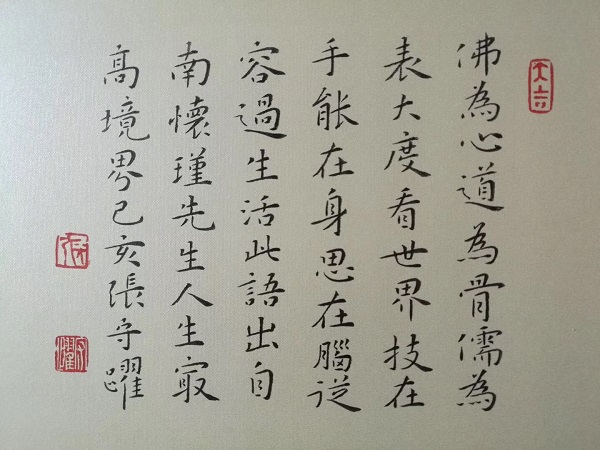 佛為心道為骨儒為
表大度看世界技在
手能在身思在腦從
容過生活此語出自
南懷瑾先生人生㝡
高境界己亥張守躍